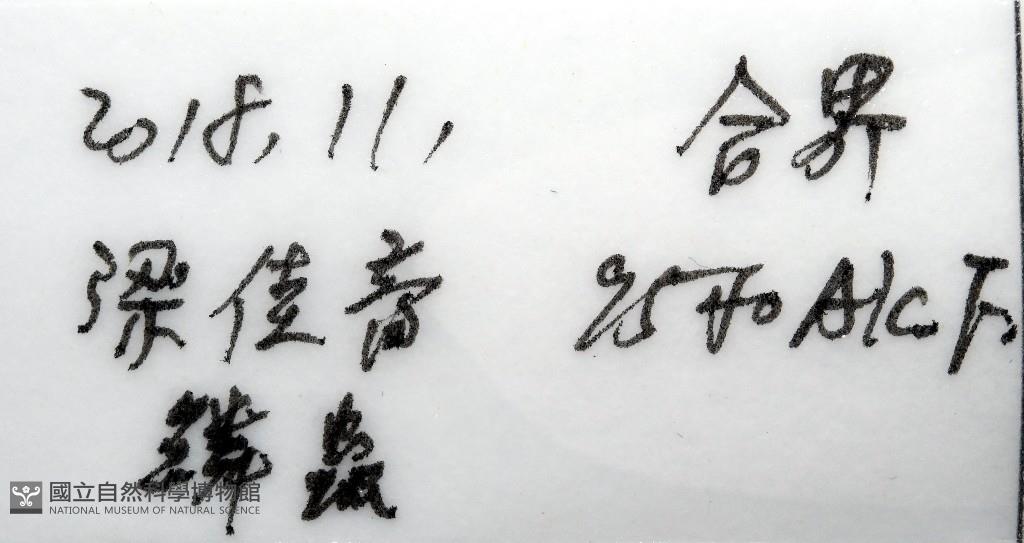 2018.11. 合界
梁佳音 95% Alc.
鱗蟲
國立自然科學博物館
NATIONAL MUSEUM OF NATURAL SCIENCE